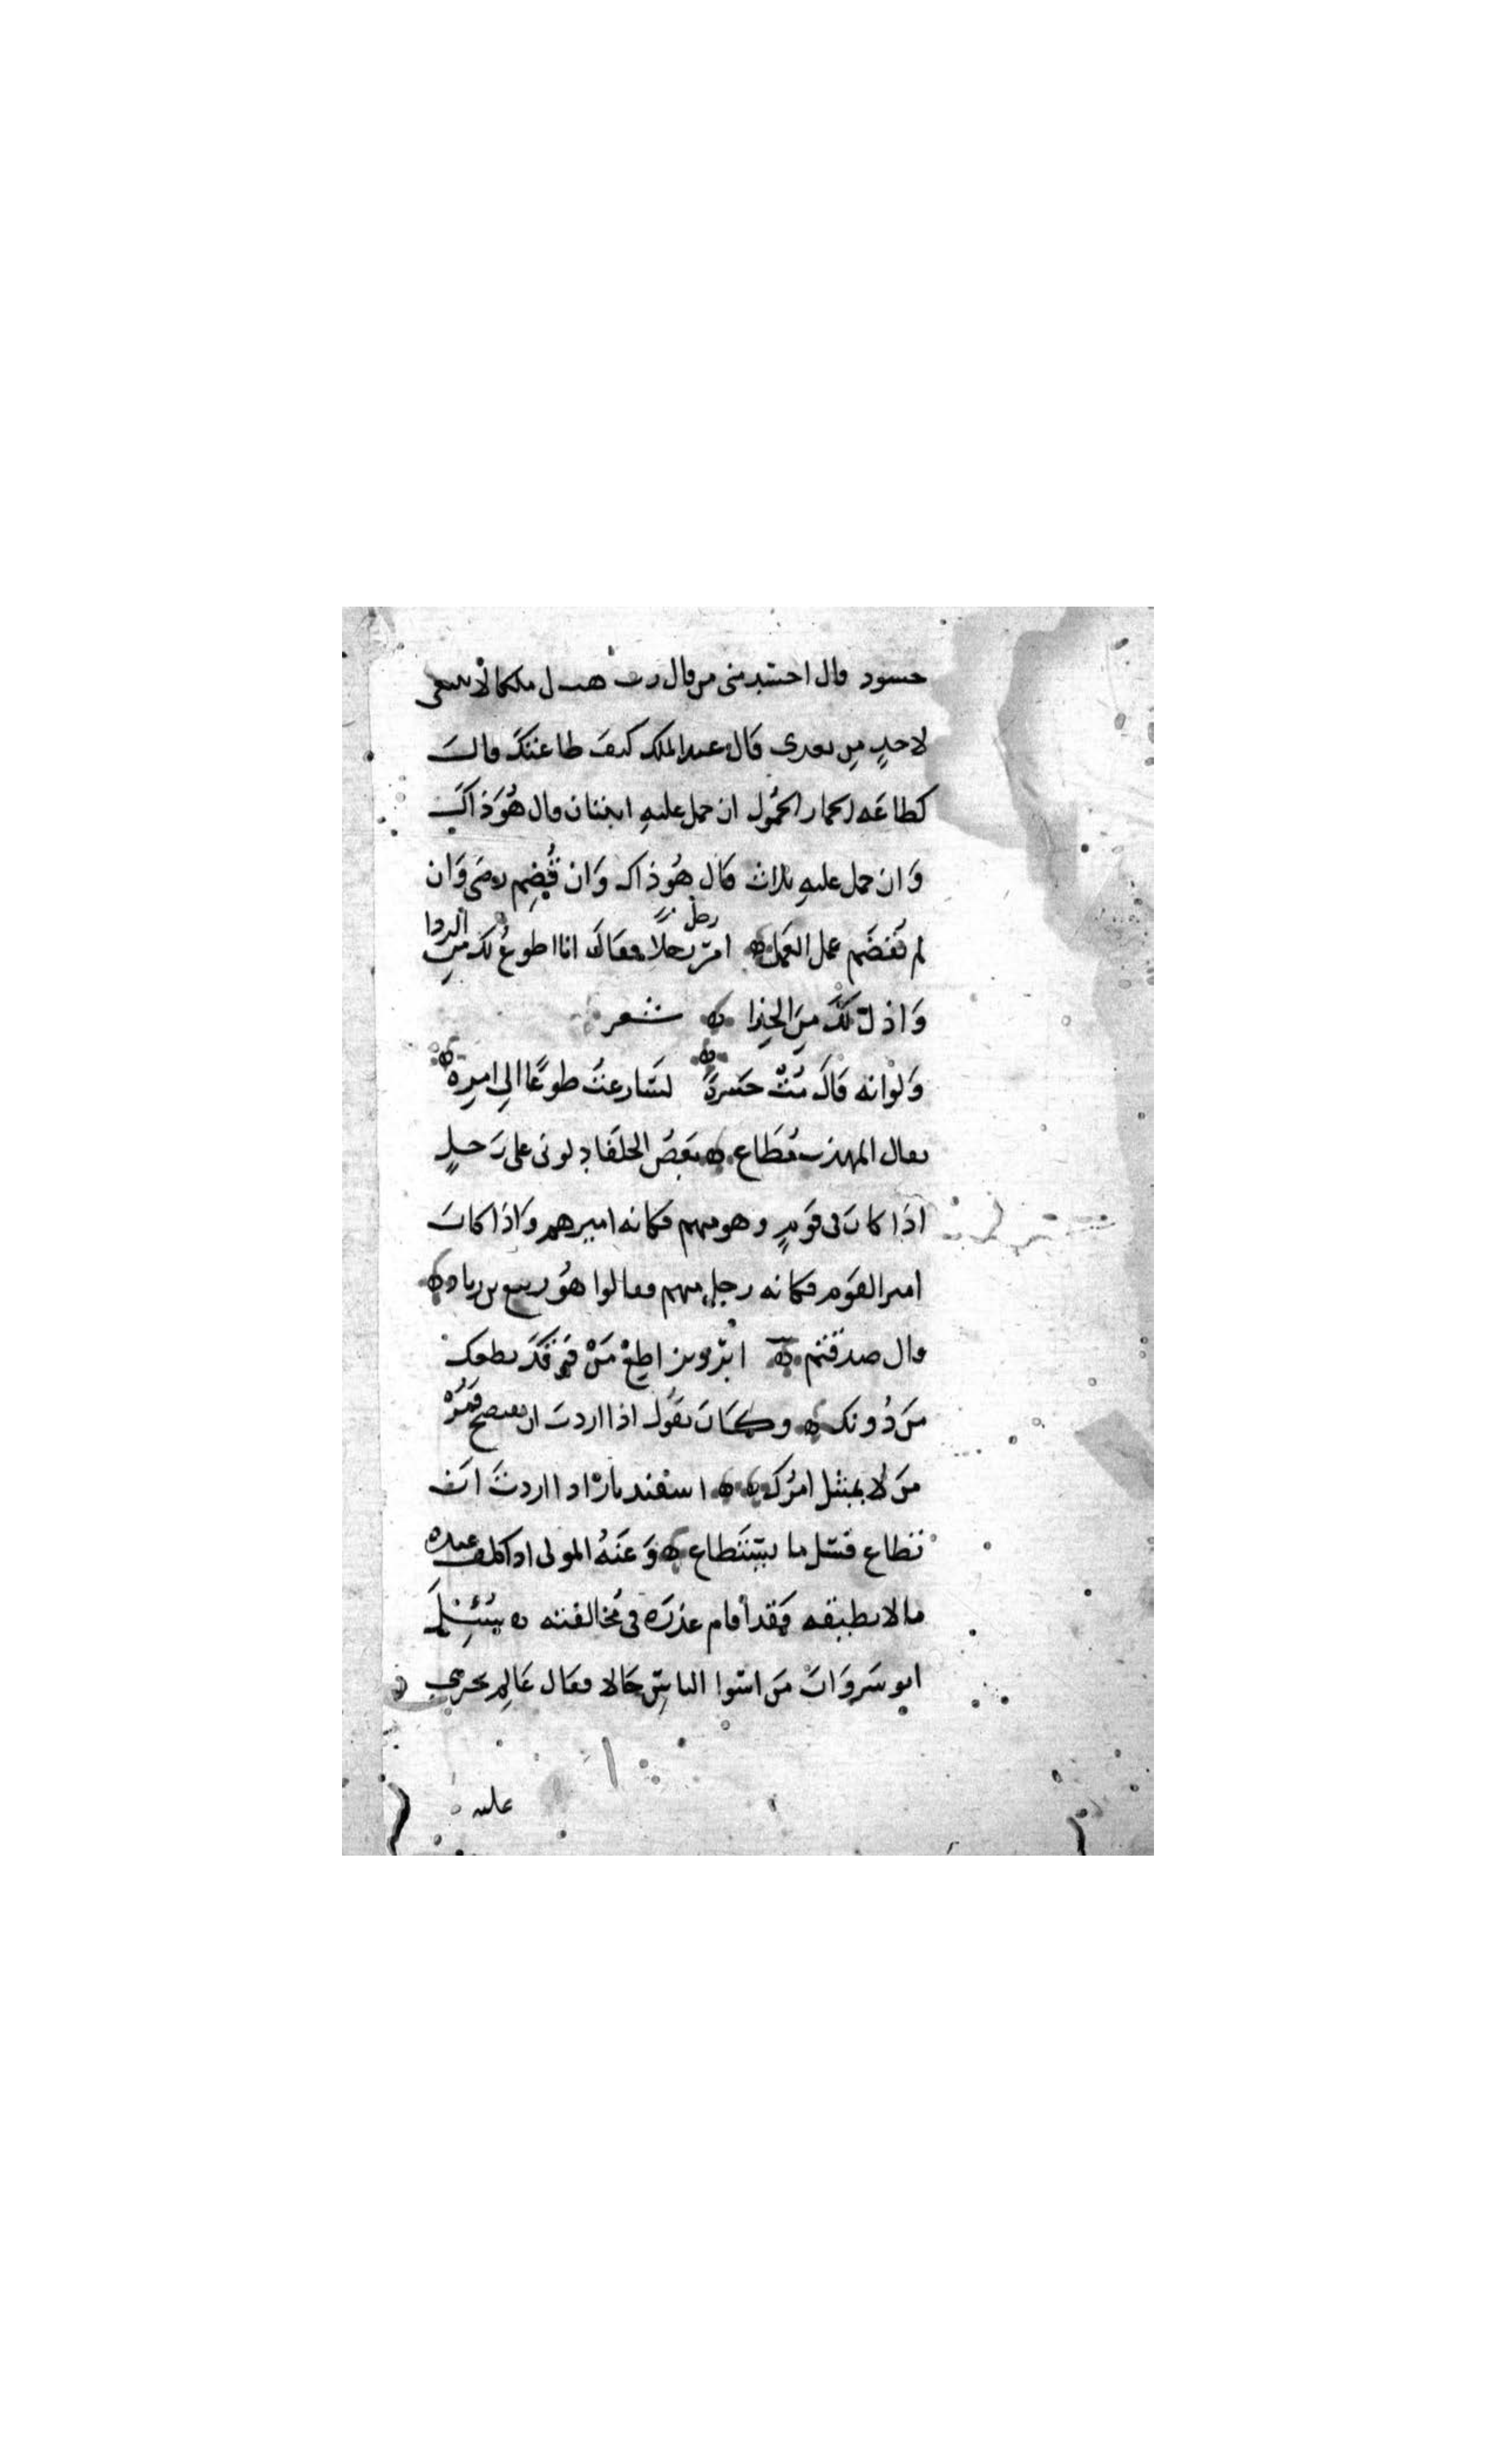 حسود قال احسد منى من قال رب هب لى ملكا لا ينبغى
لاحدٍ مِن بعدى قال عبد الملك كيفَ طاعتكَ قالت
كطاعَه الحمار الحَمُول ان حمل عليهِ اثنتان قال هُوَ ذاكَ
وَان حمل عليهِ ثلاث قال هُو ذاك وَان قُضِم رضى وَان
لم يُقضَم عمل العَمل امرَ رجل رجلًا فقالَ انا اطوعُ لك مِن الردا
وَاذلّ لكَ مِنَ الحذا شعر
وَلوْ انه قالَ مُتْ حَسرةً لسَارعتُ طوعًا الى امرِه
يقال المهذب مُطَاع بَعضُ الخلفا دلونى على رَجلٍ
اذا كانَ فى قومٍ وهو منهم فكانه اميرهم وَاذا كانَ
امير القوم فكانه رجل منهم فقالوا هُو ربيع بن زياد
قال صدقتم ابرويز اطِعْ مَنْ فوقكَ يطعك
مَن دُونك وكانَ يقول اذا اردتَ ان تفتضح فمُرْ
مَن لا يمتثل امرَك اسفنديارْ اذا اردتَ ان
تطاع فسَل ما يُستَطاع وَعَنهُ المولى اذا كلف عبده
ما لا يطيقه فقد أقام عذرَه فى مُخالفته سُئِلَ
انوشروَانَ مَن اسوا الناسِ حَالا فقال عَالِم يجرى
عليه